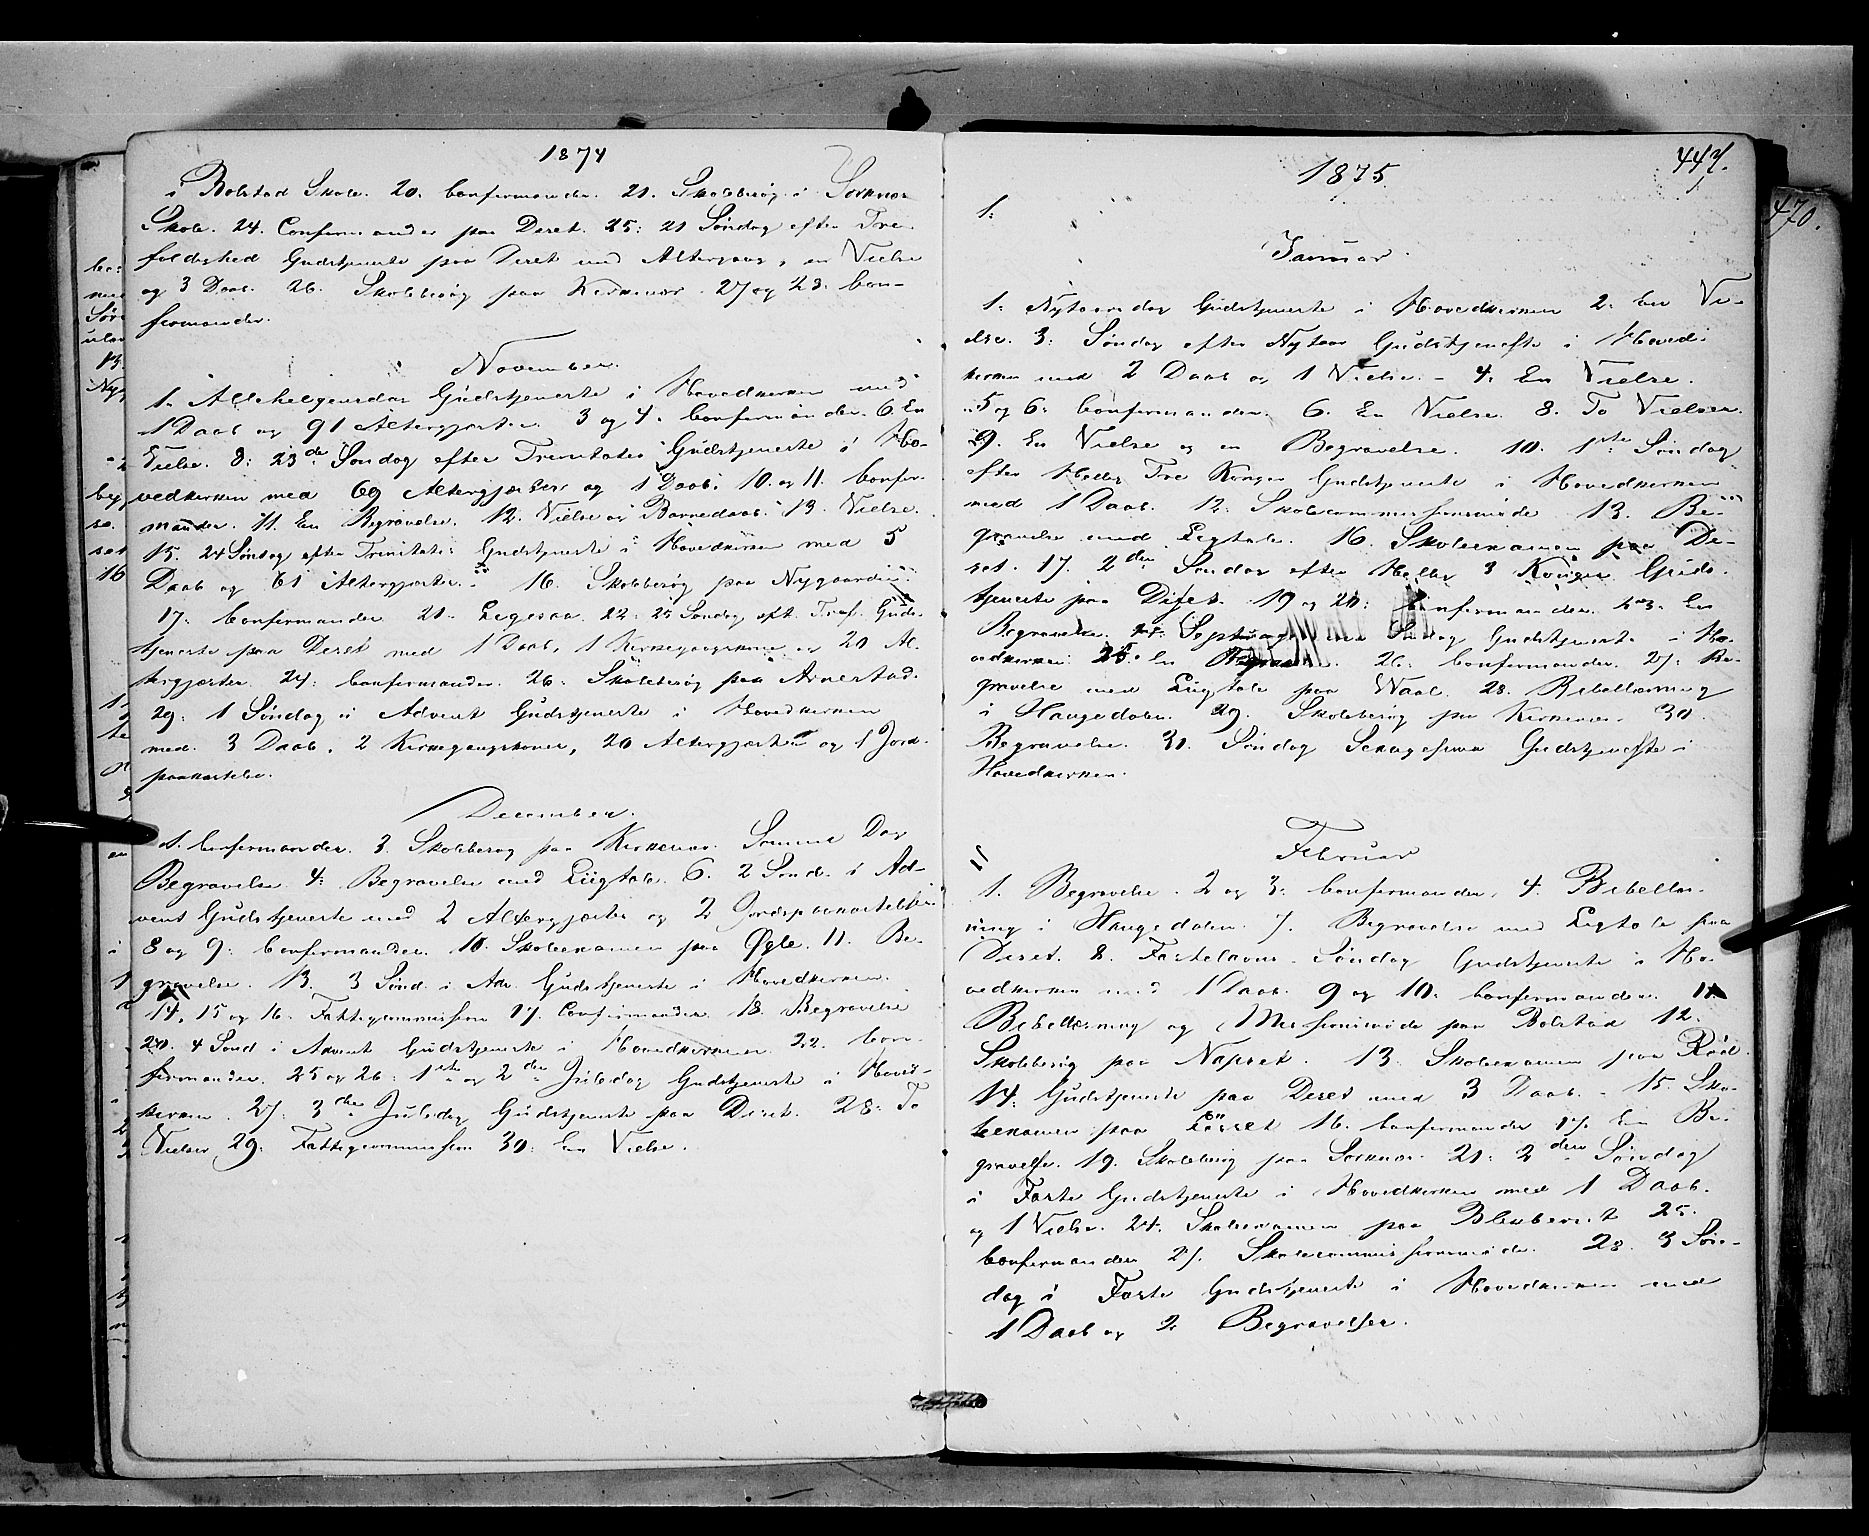 1874
i Bolstad Skole. 20. Confermander. 21. Skolebesøg i Sorknæs
Skole. 24. Confermander paa Deset. 25: 21 Søndag efter Tre-
foldighed Gudstjeneste paa Deset med Altergang, en Vielse
og 3 Daab. 26. Skolebesøg paa Kirkenær. 27 og 28. Con-
fermander.
November.
1. Allehelgensdag Gudstjeneste i Hovedkirken med
1 Daab og 91 Altergjæster. 3 og 4. Confermander. 6. En
Vielse. 8: 23de Søndag efter Trinitatis Gudstjeneste i Ho-
vedkirken med 69 Altergjæster og 1 Daab. 10. og 11. Confer-
mander. 11. En Begravelse. 12. Vielse og Barnedaab. 13. Vielse.
15. 24 Søndag efter Trinitatis Gudstjeneste i Hovedkirken med 5
Daab og 61 Altergjæster. 16. Skolebesøg paa Nygaarden.
17. Confermander 21. 22: 25 Søndag eft. Tref. Guds-
tjeneste paa Deset med 1 Daab, 1 Kirkegangskone og 20 Al-
tergjæster. 24: Confermander. 26. Skolebesøg paa Arnestad.
29: 1 Søndag i Advent Gudstjeneste i Hovedkirken
med 3 Daab, 2 Kirkegangskoner, 20 Altergjæster og 1 Jord-
paakastelse.
December.
1. Confermander. 3. Skolebesøg paa Kirkenær. Samme Dag
Begravelse 4: Begravelse med Ligtale. 6. 2 Sønd. i Ad-
vent Gudstjeneste med 2 Altergjæster og 2 Jordspaakastelser
8 og 9: Confermander. 10. Skoleexamen paa Øgle. 11. Be-
gravelse. 13. 3 Sønd i Adv. Gudstjeneste i Hovedkirken.
14, 15 og 16. Fattigcommission 17. Confirmander. 18. Begravelse
20. 4 Sønd i Advent Gudstjeneste i Hovedkirken 22. Con-
fermander. 25 og 26: 1ste og 2den Juledag Gudstjeneste i Hoved-
kirken. 27: 3die Juledag Gudstjeneste paa Deset. 28: To
Vielser 29. Fattigcommission 30: En Vielse.
1875.
447.
470.
1.
Januar.
1. Nytaarsdag Gudstjeneste i Hovedkirken 2. En Vi-
else. 3: Søndag efter Nytaar Gudstjeneste i Hoved-
kirken med 2 Daab og 1 Vielse. - 4: En Vielse.
5 og 6: Confermander. 6. En Vielse. 8. To Vielser.
9. En Vielse og en Begravelse. 10. 1ste Søndag
efter Hellig Tre Konger Gudstjeneste i Hovedkirken
med 1 Daab. 12. Skolecommissionsmøde 13. Be-
gravelse med Ligtale. 16. Skoleexamen paa De-
set. 17. 2den Søndag efter Hellig 3 Konger Guds-
tjeneste paa Deset. 19 og 20: Confermander. 23. En
Begravelse. Søndag Gudstjeneste i Ho-
vedkirken 25. En Begravelse. 26. Confermander. 27. Be-
gravelse med Ligtale paa Vaal. 28. Bibellæsning
i Haugedalen. 29. Skolebesøg paa Kirkenær. 30.
Begravelse. 31. Søndag Sexagesima Gudstjeneste i
Hovedkirken.
Februar
1. Begravelse. 2 og 3: Confermander. 4. Bibellæs-
ning i Haugedalen. 7. Begravelse med Ligtale paa
Deset. 8. Fastelavns Søndag Gudstjeneste i Ho-
vedkirken med 1 Daab. 9 og 10. Confermander. 11.
Bibellæsning og Missionsmøde paa Bolstad 12.
Skolebesøg paa Napset. 13. Skoleexamen paa Rød.
14: Gudstjeneste paa Deset med 3 Daab. - 15. Sko-
leexamen paa 16. Confermander 17. En Be-
gravelse. 19. Skolebesøg paa Sorknæs. 21: 2den Søndag
i Faste Gudstjeneste i Hovedkirken med 1 Daab.
og 1 Vielse. 24. Skoleexamen paa 25.
Confermander 27. Skolecommissionsmøde. 28. 3 Søn-
dag i Faste Gudstjeneste i Hovedkirken med
1 Daab og 2 Begravelser.